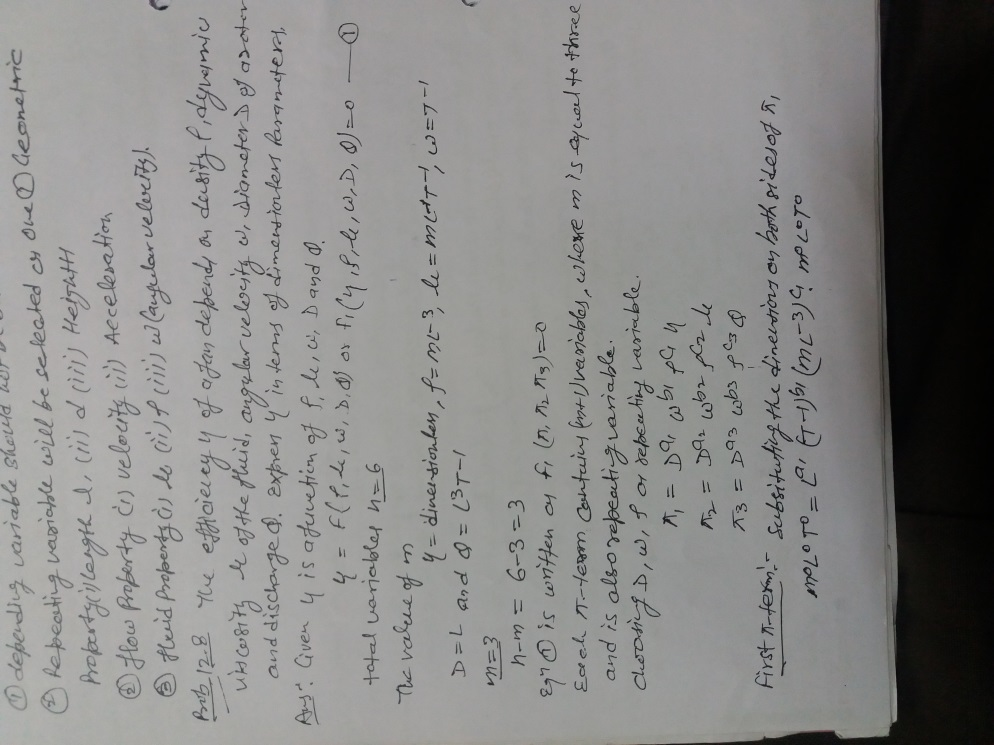 ① depending variable should not
② Repeating variable will be selected as one ① Geometric
Property (i) length l, (ii) d (iii) Height H
② flow Property (i) velocity (ii) Acceleration
③ fluid Property (i) μ (ii) ρ (iii) ω (angular velocity).
Prob 12.8 The efficiency η of a fan depends on density ρ, dynamic
viscosity μ of the fluid, angular velocity ω, diameter D of a rotor
and discharge Q. express η in terms of dimensionless Parameters.
Ans:- Given η is a function of ρ, μ, ω, D and Q.
η = f(ρ, μ, ω, D, Q) or f₁(η, ρ, μ, ω, D, Q) = 0 — ①
total variables n = 6
The value of m
η = dimensionless, ρ = mL-3, μ = mL-1T-1, ω = T-1
D = L and Q = L3T-1
m=3
n-m = 6-3 = 3
Eqn ① is written as f₁ (π₁ π₂ π₃) = 0
Each π-term contains (m+1) variables, where m is equal to three
and is also repeating variable.
choosing D, ω, ρ as repeating variable.
π₁ = Da1 ωb1 ρc1 η
π₂ = Da2 ωb2 ρc2 μ
π₃ = Da3 ωb3 ρc3 Q
First π-term:- Substituting the dimensions on both sides of π₁
m0L0T0 = La1 (T-1)b1 (mL-3)c1. m0L0T0